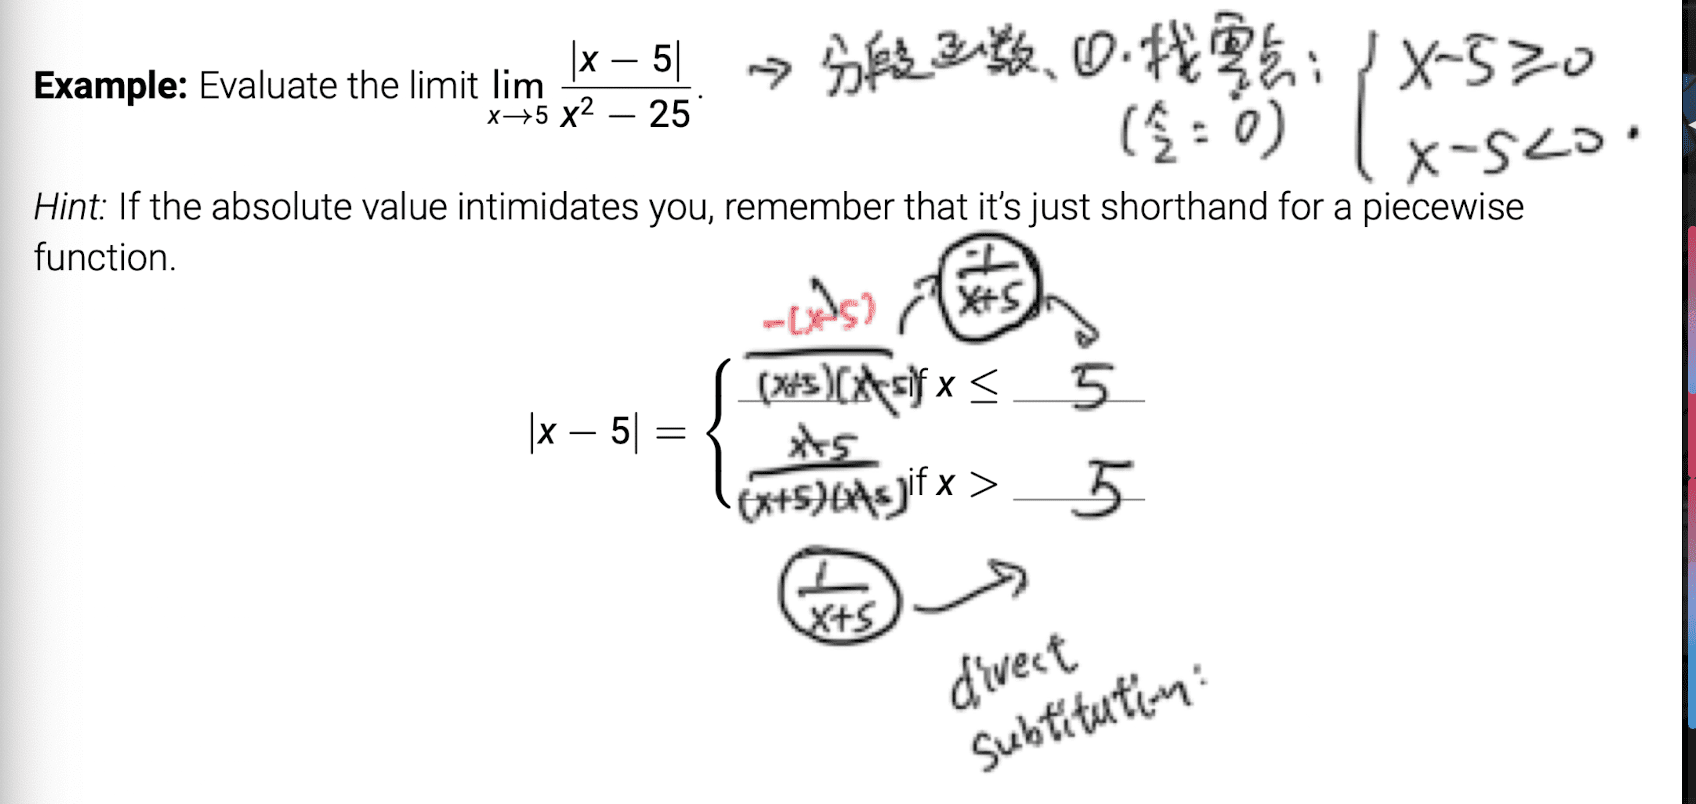 Example: Evaluate the limit lim x→5 |x − 5| / x² − 25. → 分段函数、①.找零点: { x-5≥0
(令=0) x-5<0.
Hint: If the absolute value intimidates you, remember that it's just shorthand for a piecewise
function.
-1/x+5
|x − 5| = { -(x-5)/(x+5)(x-5) if x ≤ 5
x-5/(x+5)(x-5) if x > 5
1/x+5 →
direct
subtitution: